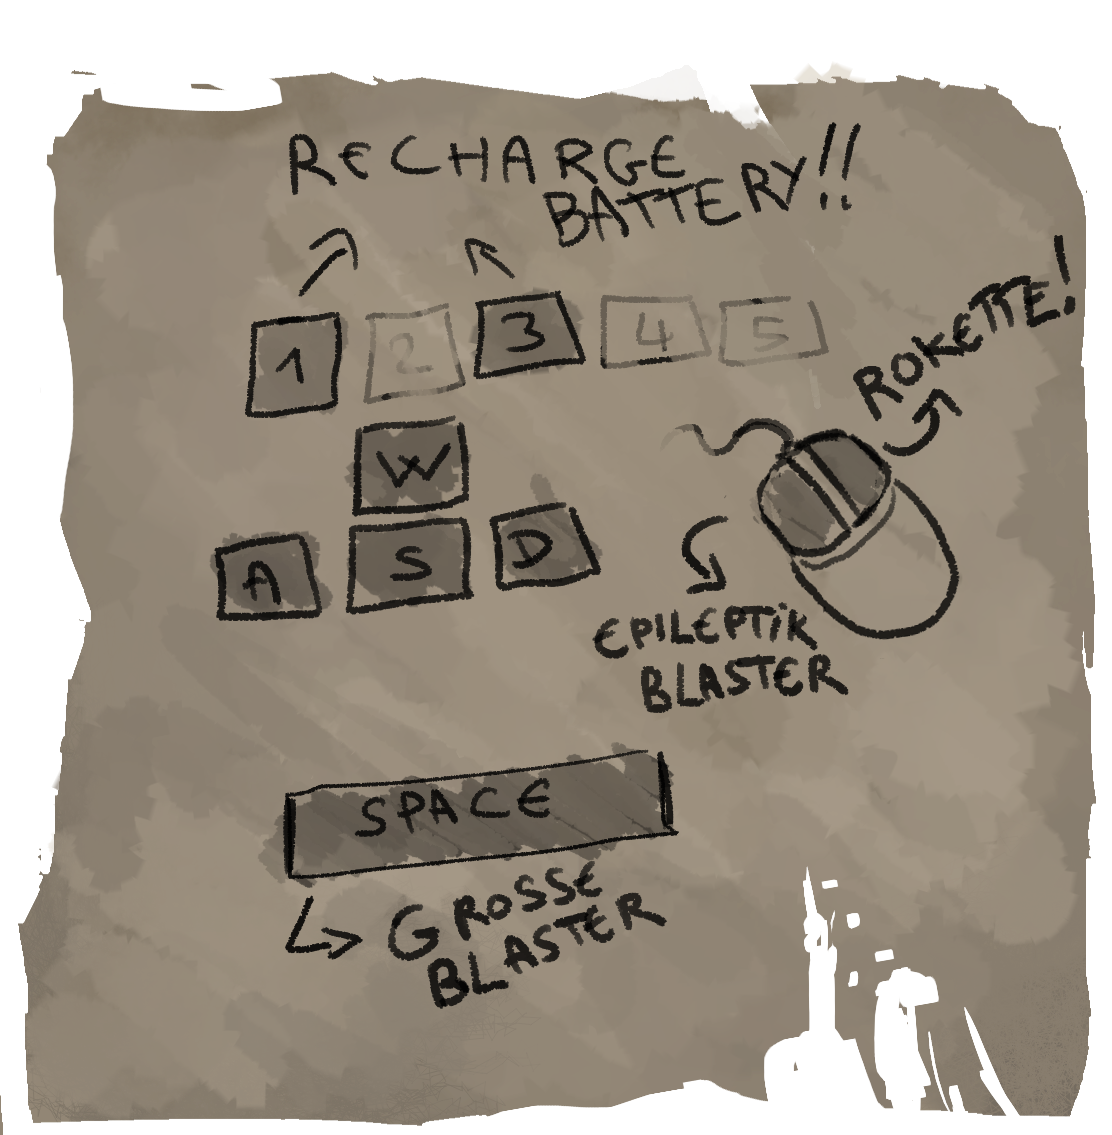 RECHARGE
BATTERY!!
1 2 3 4 5
ROKETTE!
W
A S D
EPILEPTiK
BLASTER
SPACE
GROSSE
BLASTER